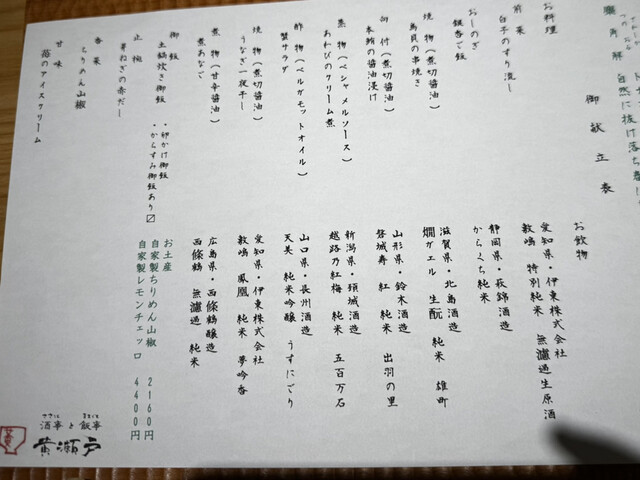 麋角解 自然に抜け落ち
御献立表
お料理
前菜
白子のすり流し
おしのぎ
銀杏ご飯
焼物(煮切醤油)
鳥貝の串焼き
向付(煮切醤油)
本鮪の醤油漬け
蒸物(ベシャメルソース)
あわびのクリーム煮
酢物(ベルガモットオイル)
蟹サラダ
焼物(煮切醤油)
うなぎ一夜干し
煮物(甘辛醤油)
煮あなご
御飯
土鍋炊き御飯
・卵かけ御飯
・からすみ御飯あり〼
止椀
芽ねぎの赤だし
香菓
ちりめん山椒
甘味
苺のアイスクリーム
お飲物
愛知県・伊東株式会社
敷嶋 特別純米 無濾過生原酒
静岡県・萩錦酒造
からくち純米
滋賀県・北島酒造
燗ガエル 生酛 純米 雄町
山形県・鈴木酒造
磐城寿 紅 純米 出羽の里
新潟県・頚城酒造
越路乃紅梅 純米 五百万石
山口県・長州酒造
天美 純米吟醸 うすにごり
愛知県・伊東株式会社
敷嶋 鳳凰 純米 夢吟香
広島県・西條鶴醸造
西條鶴 無濾過 純米
お土産
自家製ちりめん山椒 2160円
自家製レモンチェッロ 4400円
酒事と飯事
黄瀬戸